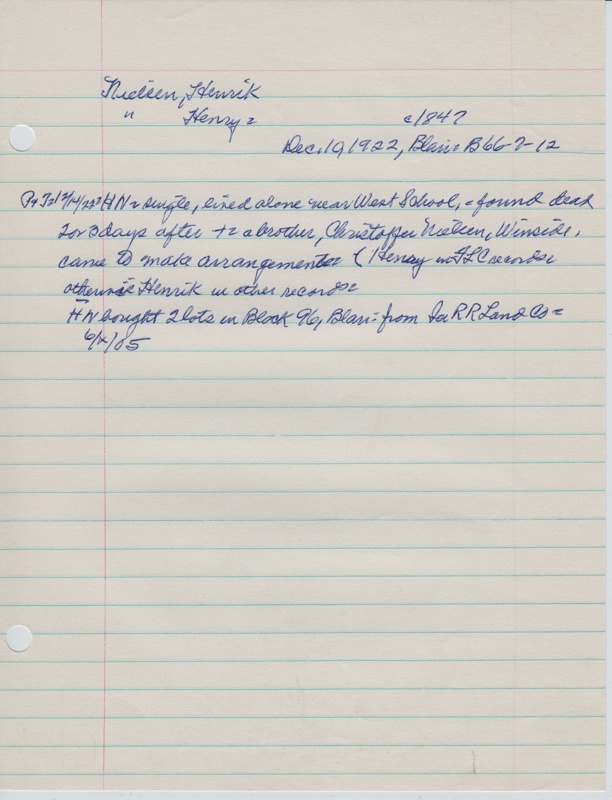 Nielsen, Henrik
" Henry = c1847
Dec. 10, 1922, Blair = B66-7-12
12/14/22 = HN = single, lived alone near West School, = found dead
2 or 3 days after + = a brother, Christoffer Nielsen, Winside,
came to make arrangements = (Henry in FLC records =
otherwise Henrik in other records =
HN bought 2 lots in Block 96, Blair = from Ia RR Land Co =
6/2/05